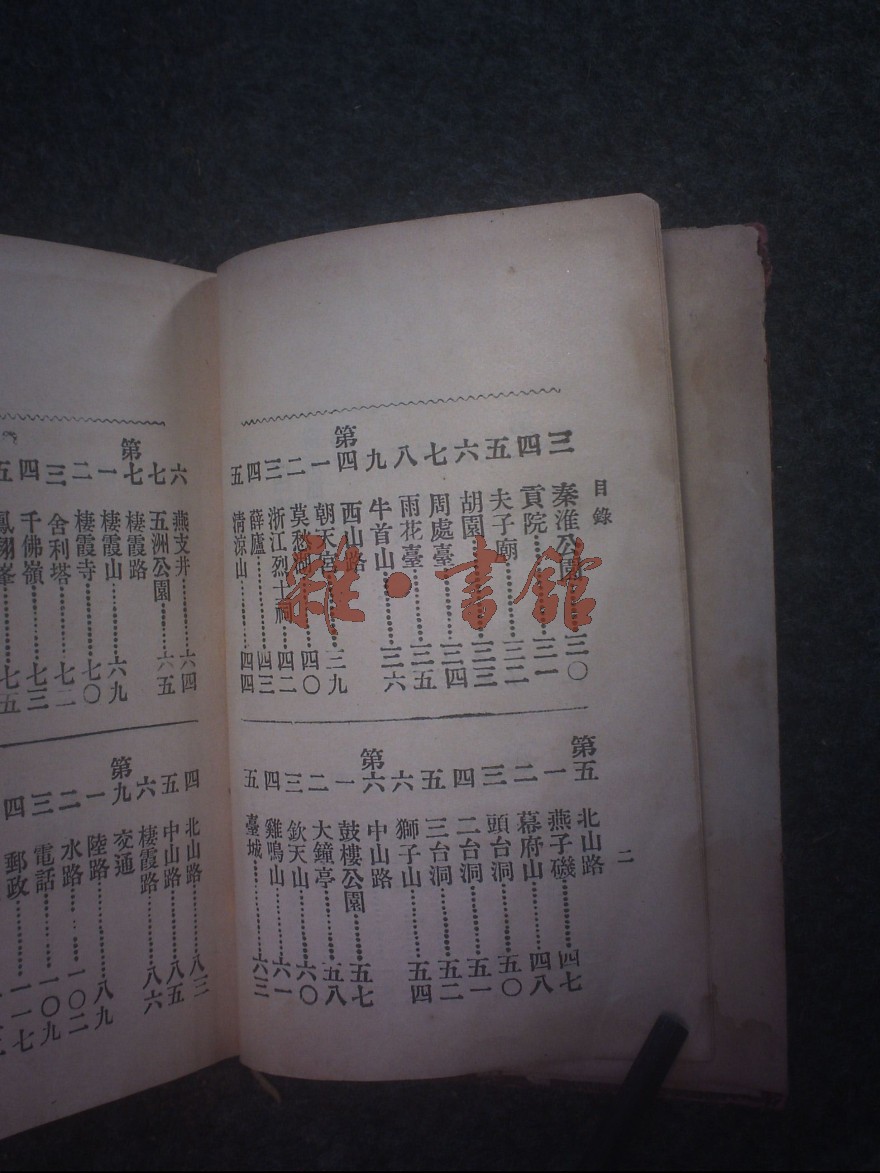 目錄
三 秦淮公園……三〇
四 貢院……三一
五 夫子廟……三二
六 胡園……三三
七 周處臺……三四
八 雨花臺……三五
九 牛首山……三六
第四 西山路
一 朝天宮……三九
二 莫愁湖……四〇
三 浙江烈士祠……四二
四 薛廬……四三
五 清涼山……四四
第五 北山路
一 燕子磯……四七
二 幕府山……四八
三 頭台洞……五〇
四 二台洞……五一
五 三台洞……五二
六 獅子山……五四
第六 中山路
一 鼓樓公園……五七
二 大鐘亭……五八
三 欽天山……六〇
四 雞鳴山……六一
五 臺城……六三
二
六 燕支井……六四
七 五洲公園……六五
第七 棲霞路
一 棲霞山……六九
二 棲霞寺……七〇
三 舍利塔……七二
四 千佛嶺……七三
五 鳳翔峯……七五
四 北山路……八三
五 中山路……八五
六 棲霞路……八六
第九 交通
一 陸路……八九
二 水路……一〇二
三 電話……一〇九
四 郵政……一一七
雜·書館